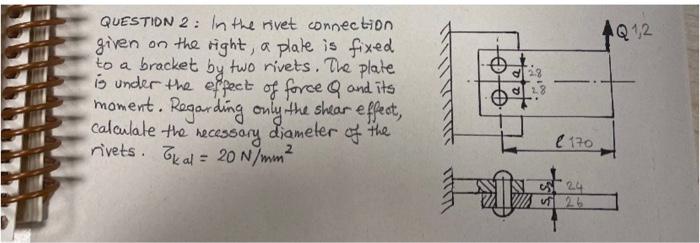 QUESTION 2: In the rivet connection
given on the right, a plate is fixed
to a bracket by two rivets. The plate
is under the effect of force Q and its
moment. Regarding only the shear effect,
calculate the necessary diameter of the
rivets. τk al = 20 N/mm²
Q 1,2
a 28
a 28
l 170
S₂ 24
S₁ 26